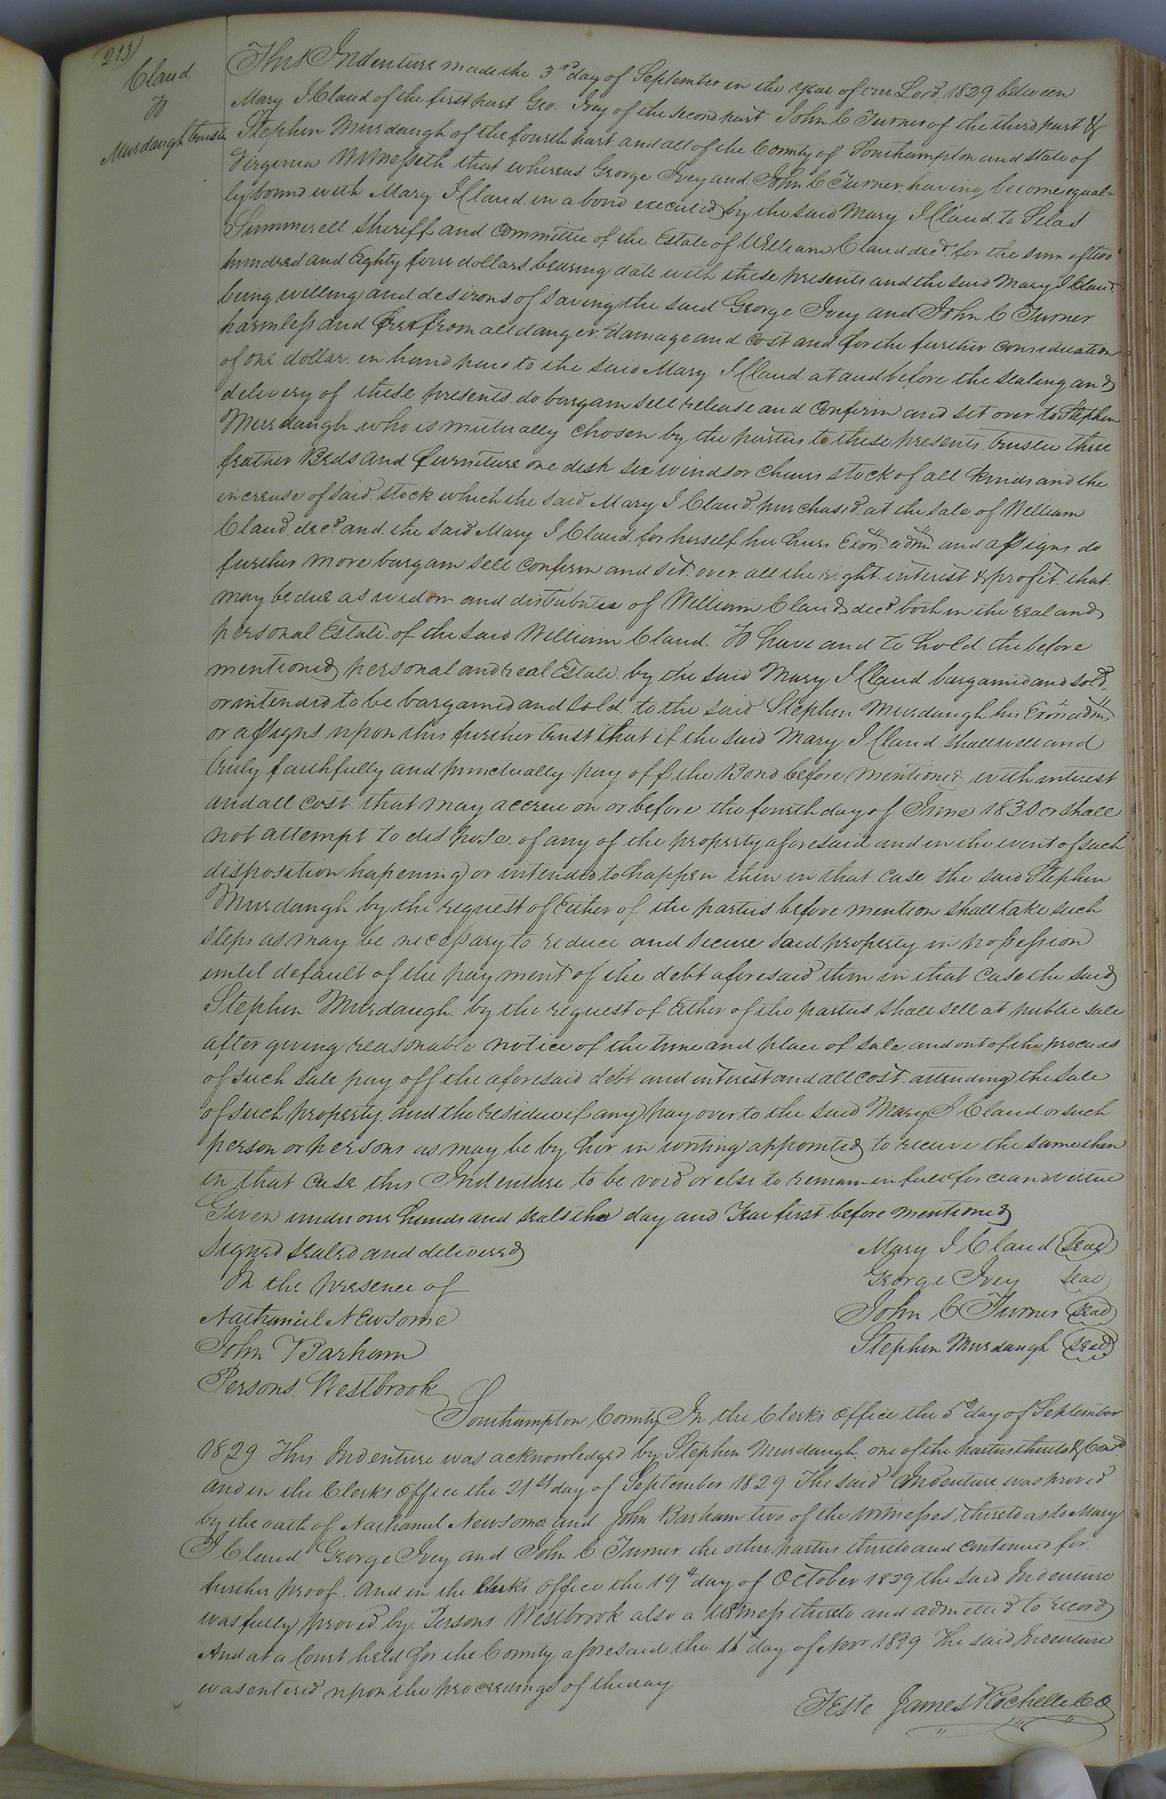 213
Claud
To
Murdaugh trustee
This Indenture made the 3rd day of September in the year of our Lord 1829 between
Mary J Claud of the first part Geo. Ivey of the second part John C Turner of the third part &
Stephen Murdaugh of the fourth part and all of the County of Southampton and state of
Virginia Witnesseth that whereas George Ivey and John C Turner having become equal-
ly bound with Mary J Claud in a bond executed by the said Mary J Claud to Silas
Summerell Sheriff and committee of the Estate of William Claud decd for the sum of two
hundred and Eighty four dollars bearing date with these presents and the said Mary J Claud
being willing and desirous of saving the said George Ivey and John C Turner
harmless and free from all danger damage and cost and for the further consideration
of one dollar in hand paid to the said Mary J Claud at and before the sealing and
delivery of these presents do bargain sell release and confirm and set over to Stephen
Murdaugh who is mutually chosen by the parties to these presents trustee three
feather Beds and furniture one desk six windsor chairs stock of all kinds and the
increase of said stock which the said Mary J Claud purchased at the sale of William
Claud decd and the said Mary J Claud for herself her heirs Exors admrs and assigns do
further more bargain sell confirm and set over all the right interest & profit that
may be due as widow and distributee of William Claud decd both in the real and
personal Estate of the said William Claud. To have and to hold the before
mentioned personal and real Estate by the said Mary J Claud bargained and sold
or intended to be bargained and sold to the said Stephen Murdaugh his Exors admrs
or assigns upon this further trust that if the said Mary J Claud shall well and
truly faithfully and punctually pay off the Bond before mentioned with interest
and all cost that may accrue on or before the fourth day of June 1830 or shall
not attempt to dispose of any of the property aforesaid and in the event of such
disposition hapening or intended to happen then in that case the said Stephen
Murdaugh by the request of Either of the parties before mention shall take such
steps as may be necessary to reduce and secure said property in possession
until default of the payment of the debt aforesaid then in that case the said
Stephen Murdaugh by the request of Either of the parties shall sell at public sale
after giving reasonable notice of the time and place of sale and out of the proceeds
of such sale pay off the aforesaid debt and interest and all cost attending the sale
of such property and the residue if any pay over to the said Mary J Claud or such
person or persons as may be by her in writing appointed to receive the same then
in that case this Indenture to be void or else to remain in full force and virtue
Given under our hands and seals the day and Year first before mentioned
Signed sealed and delivered
In the presence of
Nathaniel Newsome
John Barham
Persons Westbrook
Mary J Claud Seal
George Ivey Seal
John C Turner Seal
Stephen Murdaugh Seal
Southampton County In the Clerks office the 5th day of September
1829 This Indenture was acknowledged by Stephen Murdaugh one of the parties thereto & Contd
And in the Clerks office the 21st day of September 1829 The said Indenture was proved
by the oath of Nathaniel Newsome and John Barham two of the witnesses thereto as to Mary
J Claud George Ivey and John C Turner the other parties thereto and continued for
further proof. And in the Clerks office the 19th day of October 1829 the said Indenture
was fully proved by Persons Westbrook also a Witness thereto and admitted to record
And at a Court held for the County aforesaid the day of Novr 1829 The said Indenture
was entered upon the proceedings of the day
Teste James Rochelle CC